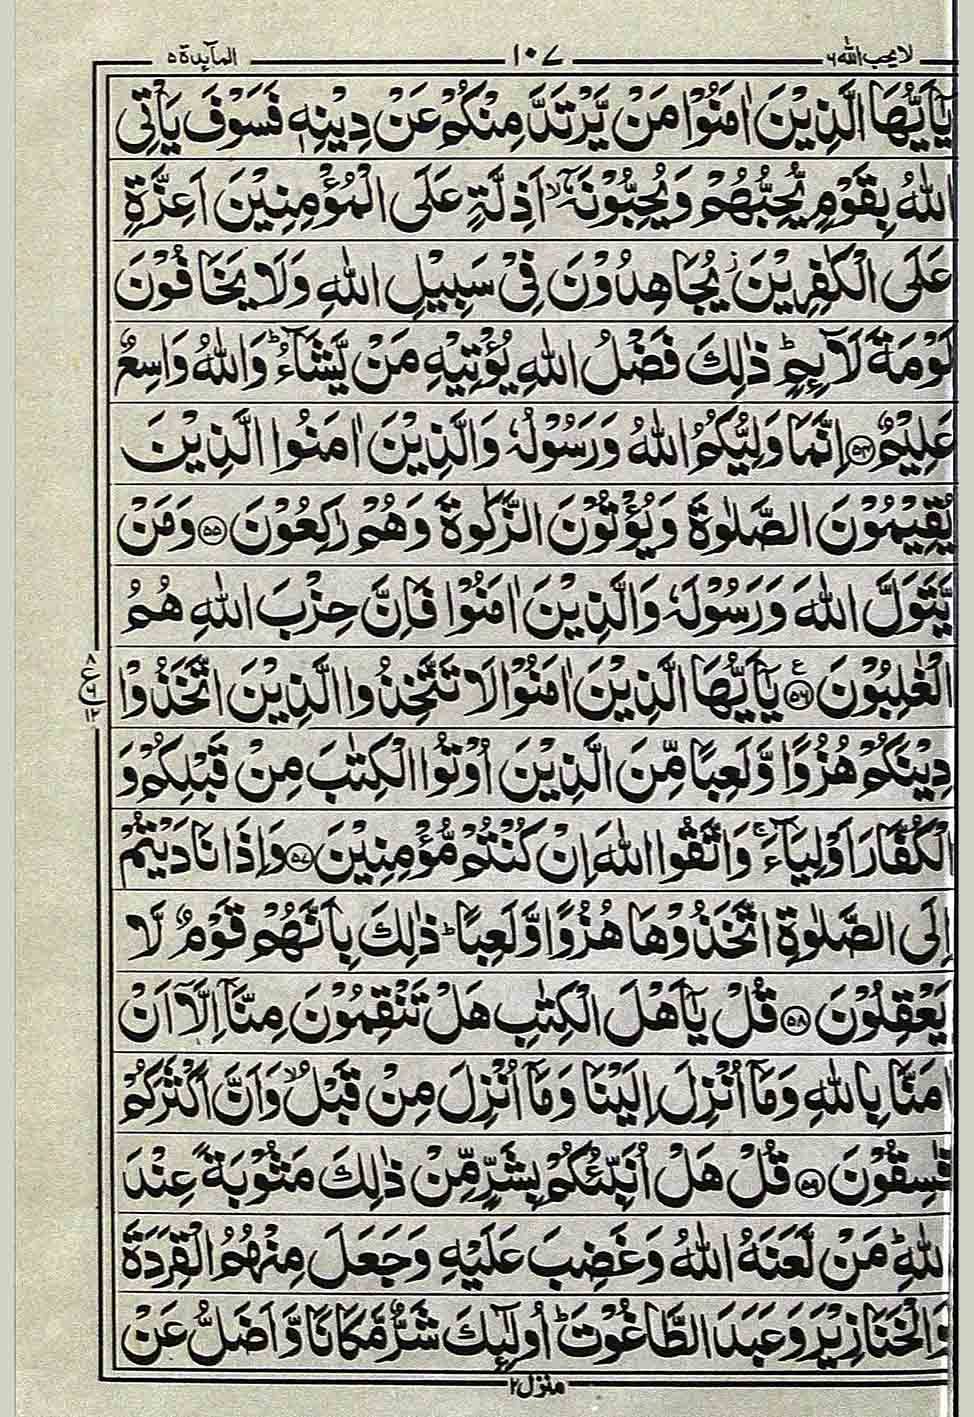 لا يحب الله ٦ ١٠٧ المآىدة ٥
يٰۤاَيُّهَا الَّذِيْنَ اٰمَنُوْا مَنْ يَّرْتَدَّ مِنْكُمْ عَنْ دِيْنِهٖ فَسَوْفَ يَاْتِى
اللّٰهُ بِقَوْمٍ يُّحِبُّهُمْ وَيُحِبُّوْنَهٗۤ ۙ اَذِلَّةٍ عَلَى الْمُؤْمِنِيْنَ اَعِزَّةٍ
عَلَى الْكٰفِرِيْنَ ؗ يُجَاهِدُوْنَ فِىْ سَبِيْلِ اللّٰهِ وَلَا يَخَافُوْنَ
لَوْمَةَ لَآئِمٍ ؕ ذٰلِكَ فَضْلُ اللّٰهِ يُؤْتِيْهِ مَنْ يَّشَآءُ ؕ وَاللّٰهُ وَاسِعٌ
عَلِيْمٌ ۝۵۴ اِنَّمَا وَلِيُّكُمُ اللّٰهُ وَرَسُوْلُهٗ وَالَّذِيْنَ اٰمَنُوا الَّذِيْنَ
يُقِيْمُوْنَ الصَّلٰوةَ وَيُؤْتُوْنَ الزَّكٰوةَ وَهُمْ رٰكِعُوْنَ ۝۵۵ وَمَنْ
يَّتَوَلَّ اللّٰهَ وَرَسُوْلَهٗ وَالَّذِيْنَ اٰمَنُوْا فَاِنَّ حِزْبَ اللّٰهِ هُمُ
الْغٰلِبُوْنَ ۝۵۶ ع يٰۤاَيُّهَا الَّذِيْنَ اٰمَنُوْا لَا تَتَّخِذُوا الَّذِيْنَ اتَّخَذُوْا
٨ ع ٦ ١٢
دِيْنَكُمْ هُزُوًا وَّلَعِبًا مِّنَ الَّذِيْنَ اُوْتُوا الْكِتٰبَ مِنْ قَبْلِكُمْ وَ
الْكُفَّارَ اَوْلِيَآءَ ۚ وَاتَّقُوا اللّٰهَ اِنْ كُنْتُمْ مُّؤْمِنِيْنَ ۝۵۷ وَاِذَا نَادَيْتُمْ
اِلَى الصَّلٰوةِ اتَّخَذُوْهَا هُزُوًا وَّلَعِبًا ؕ ذٰلِكَ بِاَنَّهُمْ قَوْمٌ لَّا
يَعْقِلُوْنَ ۝۵۸ قُلْ يٰۤاَهْلَ الْكِتٰبِ هَلْ تَنْقِمُوْنَ مِنَّاۤ اِلَّاۤ اَنْ
اٰمَنَّا بِاللّٰهِ وَمَاۤ اُنْزِلَ اِلَيْنَا وَمَاۤ اُنْزِلَ مِنْ قَبْلُ ۙ وَاَنَّ اَكْثَرَكُمْ
فٰسِقُوْنَ ۝۵۹ قُلْ هَلْ اُنَبِّئُكُمْ بِشَرٍّ مِّنْ ذٰلِكَ مَثُوْبَةً عِنْدَ
اللّٰهِ ؕ مَنْ لَّعَنَهُ اللّٰهُ وَغَضِبَ عَلَيْهِ وَجَعَلَ مِنْهُمُ الْقِرَدَةَ
وَالْخَنَازِيْرَ وَعَبَدَ الطَّاغُوْتَ ؕ اُولٰٓئِكَ شَرٌّ مَّكَانًا وَّاَضَلُّ عَنْ
منزل ٢